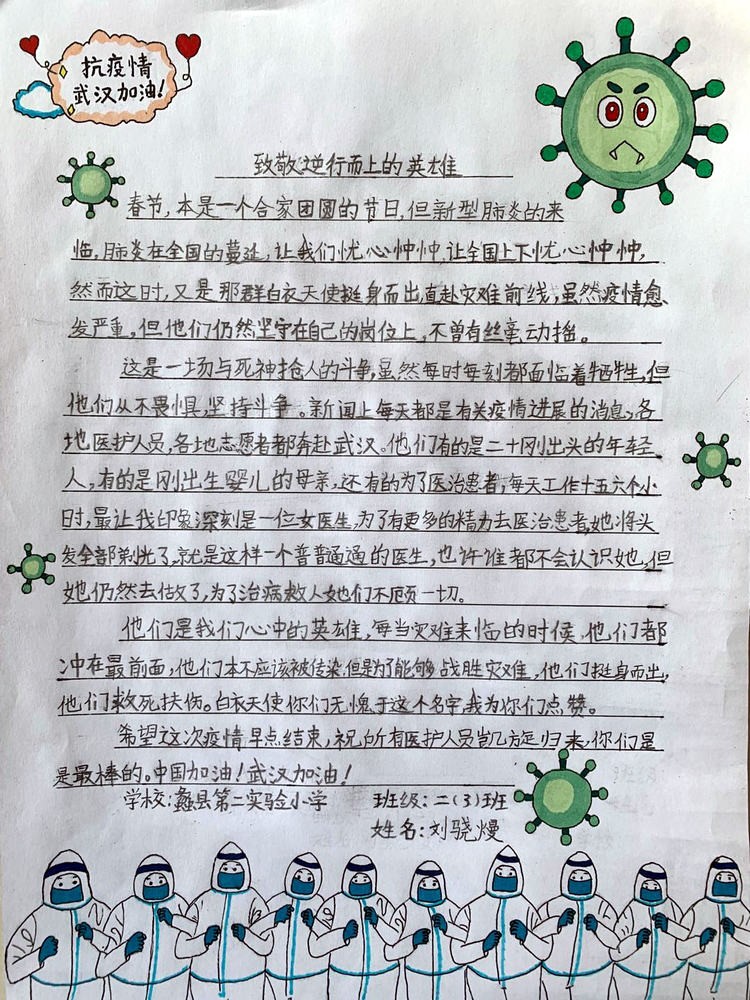 抗疫情
武汉加油!
致敬逆行而上的英雄
春节,本是一个合家团圆的节日,但新型肺炎的来
临,肺炎在全国的蔓延,让我们忧心忡忡,让全国上下忧心忡忡,
然而这时,又是那群白衣天使挺身而出,直赴灾难前线,虽然疫情愈
发严重,但他们仍然坚守在自己的岗位上,不曾有丝毫动摇。
这是一场与死神抢人的斗争,虽然每时每刻都面临着牺牲,但
他们从不畏惧,坚持斗争。新闻上每天都是有关疫情进展的消息,各
地医护人员,各地志愿者都奔赴武汉。他们有的是二十刚出头的年轻
人,有的是刚出生婴儿的母亲,还有的为了医治患者,每天工作十五六个小
时,最让我印象深刻是一位女医生,为了有更多的精力去医治患者,她将头
发全部剃光了,就是这样一个普普通通的医生,也许谁都不会认识她,但
她仍然去做了,为了治病救人她们不顾一切。
他们是我们心中的英雄,每当灾难来临的时候,他们都
冲在最前面,他们本不应该被传染,但是为了能够战胜灾难,他们挺身而出,
他们救死扶伤。白衣天使你们无愧于这个名字,我为你们点赞。
希望这次疫情早点结束,祝所有医护人员凯旋归来,你们是
是最棒的。中国加油!武汉加油!
学校:蠡县第二实验小学 班级:二(3)班
姓名:刘骁熳